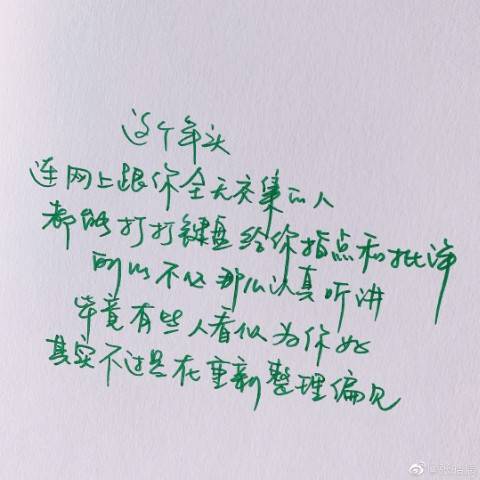 这个年头
连网上跟你全无交集的人
都能打打键盘给你指点和批评
所以不必那么认真听讲
毕竟有些人看似为你好
其实不过是在重新整理偏见